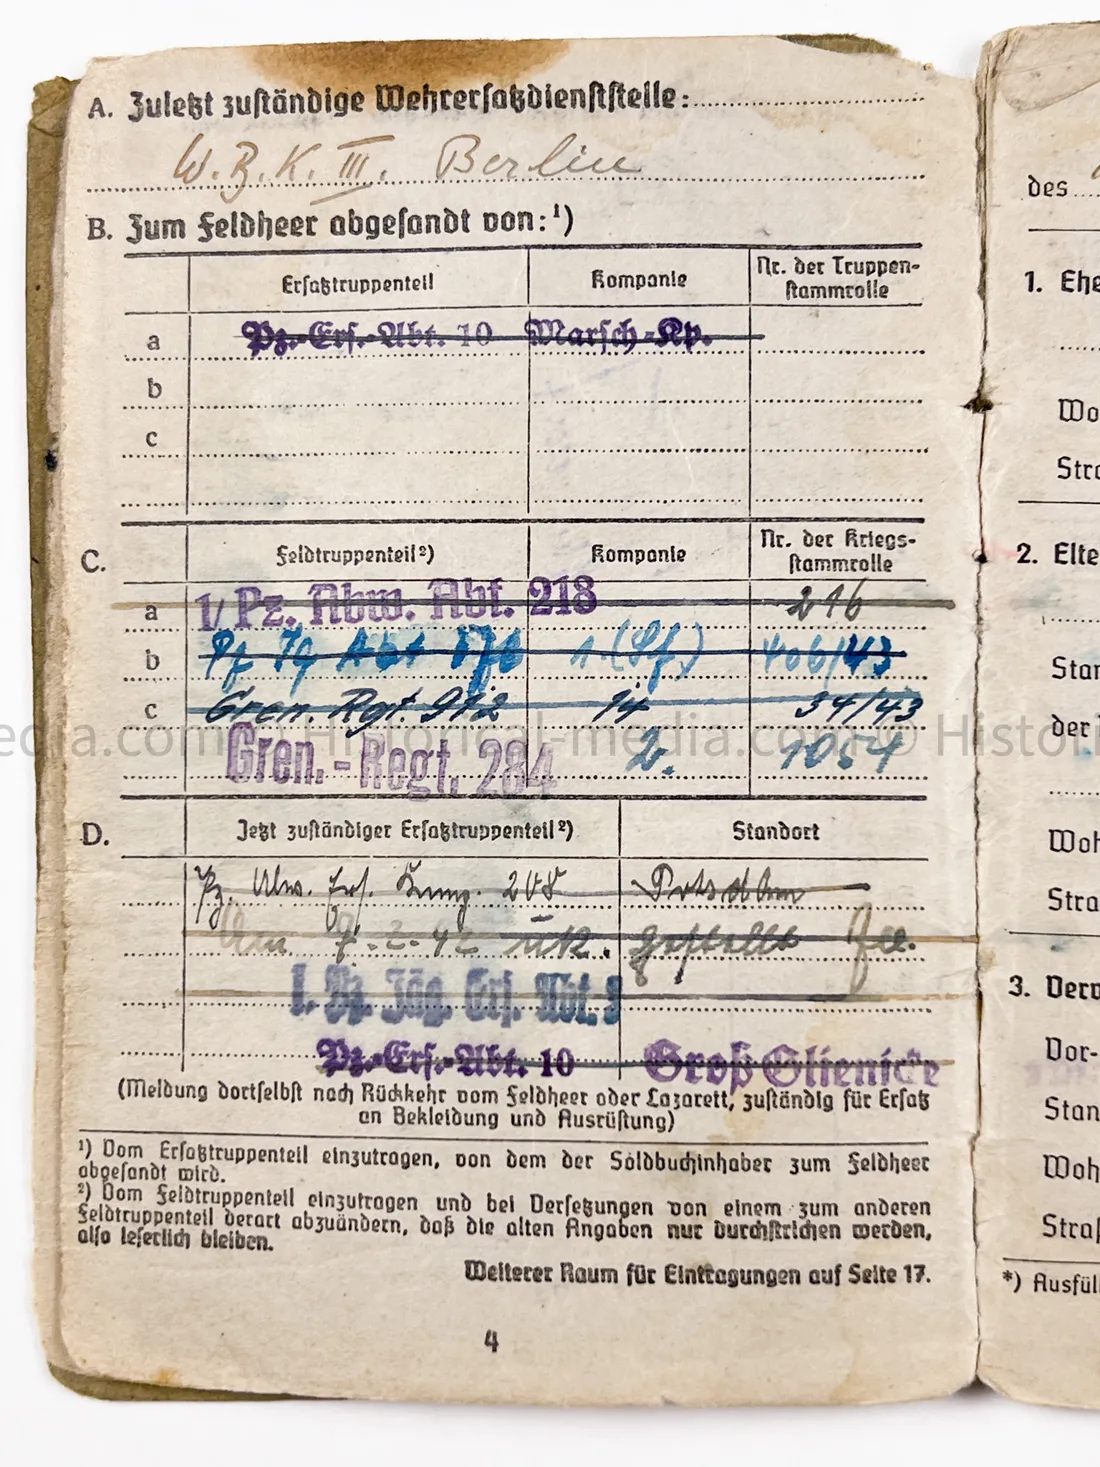 A. Zuletzt zuständige Wehrersatzdienststelle:
W.B.K. III. Berlin
B. Zum Feldheer abgesandt von:¹)
Ersatztruppenteil Kompanie Nr. der Truppen-
stammrolle
a Pz.-Ers.-Abt. 10 Marsch-Kp.
b
c
C. Feldtruppenteil²) Kompanie Nr. der Kriegs-
stammrolle
a 1/ Pz. Abw. Abt. 218 216
b Pz Jg Abt 1. (Sf.) 406/43
c Gren. Rgt. 912 14 34/43
Gren.-Regt. 284 2. 1054
D. Jetzt zuständiger Ersatztruppenteil²) Standort
Pz. Abw. Ers. Komp. 208 Potsdam
Am 7.2.42 uk. gestellt
1. Pz. Jäg. Ers. Abt. 3
Pz.-Ers.-Abt. 10 Groß Glienicke
(Meldung dortselbst nach Rückkehr vom Feldheer oder Lazarett, zuständig für Ersatz
an Bekleidung und Ausrüstung)
¹) Vom Ersatztruppenteil einzutragen, von dem der Soldbuchinhaber zum Feldheer
abgesandt wird.
²) Vom Feldtruppenteil einzutragen und bei Versetzungen von einem zum anderen
Feldtruppenteil derart abzuändern, daß die alten Angaben nur durchstrichen werden,
also leserlich bleiben.
Weiterer Raum für Eintragungen auf Seite 17.
4
des
1. Ehe
Wo
Stra
2. Elte
Stan
der
Woh
Stra
3. Verw
Vor-
Stan
Woh
Straß
*) Ausfül
edia.com © Historical-media.com © Histori